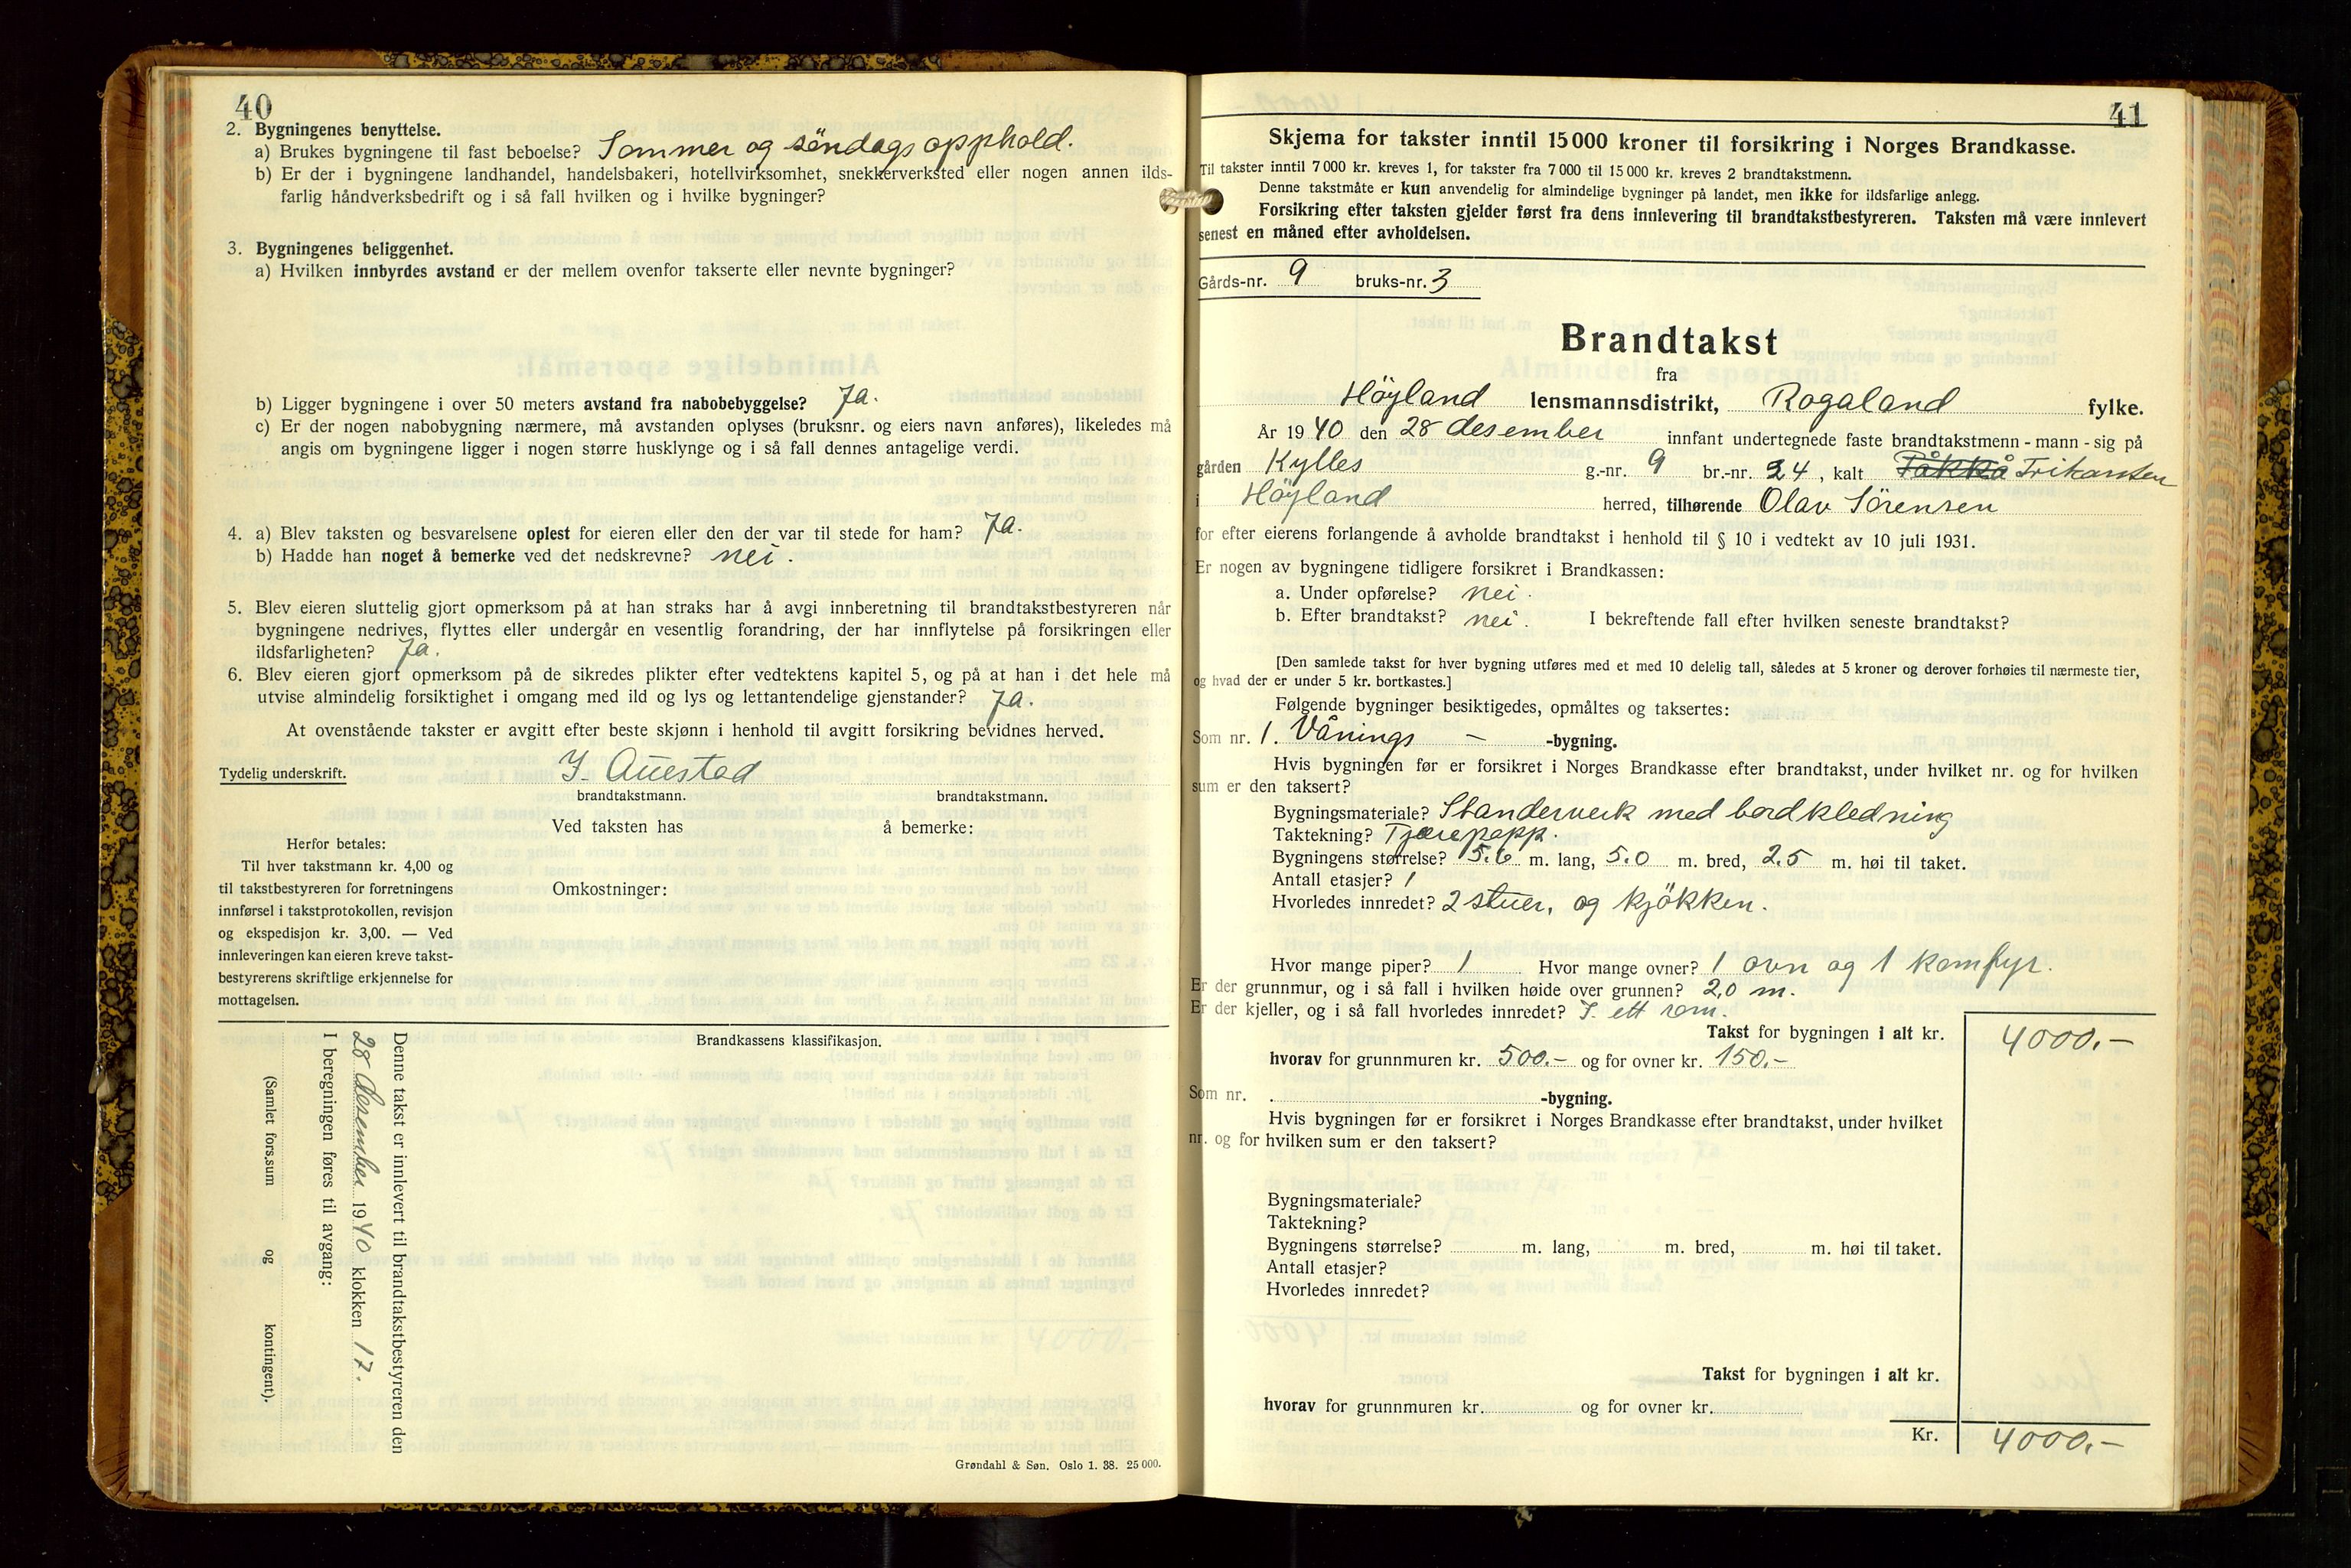 40
2. Bygningenes benyttelse.
a) Brukes bygningene til fast beboelse? Sommer og söndags opphold.
b) Er der i bygningene landhandel, handelsbakeri, hotellvirksomhet, snekkerverksted eller nogen annen ilds-
farlig håndverksbedrift og i så fall hvilken og i hvilke bygninger?
3. Bygningenes beliggenhet.
a) Hvilken innbyrdes avstand er der mellem ovenfor takserte eller nevnte bygninger?
b) Ligger bygningene i over 50 meters avstand fra nabobebyggelse? Ja.
c) Er der nogen nabobygning nærmere, må avstanden oplyses (bruksnr. og eiers navn anføres), likeledes må
angis om bygningene ligger i nogen større husklynge og i så fall dennes antagelige verdi.
4. a) Blev taksten og besvarelsene oplest for eieren eller den der var til stede for ham? Ja.
b) Hadde han noget å bemerke ved det nedskrevne? nei.
5. Blev eieren sluttelig gjort opmerksom på at han straks har å avgi innberetning til brandtakstbestyreren når
bygningene nedrives, flyttes eller undergår en vesentlig forandring, der har innflytelse på forsikringen eller
ildsfarligheten? Ja.
6. Blev eieren gjort opmerksom på de sikredes plikter efter vedtektens kapitel 5, og på at han i det hele må
utvise almindelig forsiktighet i omgang med ild og lys og lettantendelige gjenstander? Ja.
At ovenstående takster er avgitt efter beste skjønn i henhold til avgitt forsikring bevidnes herved.
Tydelig underskrift. J. Auestad
brandtakstmann. brandtakstmann.
Ved taksten has å bemerke:
Herfor betales:
Til hver takstmann kr. 4,00 og
til takstbestyreren for forretningens
innførsel i takstprotokollen, revisjon
og ekspedisjon kr. 3,00. — Ved
innleveringen kan eieren kreve takst-
bestyrerens skriftlige erkjennelse for
mottagelsen.
Omkostninger:
Brandkassens klassifikasjon.
Denne takst er innlevert til brandtakstbestyreren den
28 desember 1940 klokken 17.
I beregningen føres til avgang:
(Samlet fors.sum og kontingent).
Grøndahl & Søn. Oslo 1. 38. 25 000.
41
Skjema for takster inntil 15 000 kroner til forsikring i Norges Brandkasse.
Til takster inntil 7 000 kr. kreves 1, for takster fra 7 000 til 15 000 kr. kreves 2 brandtakstmenn.
Denne takstmåte er kun anvendelig for almindelige bygninger på landet, men ikke for ildsfarlige anlegg.
Forsikring efter taksten gjelder først fra dens innlevering til brandtakstbestyreren. Taksten må være innlevert
senest en måned efter avholdelsen.
Gårds-nr. 9 bruks-nr. 3
Brandtakst
fra
Höyland lensmannsdistrikt, Rogaland fylke.
År 1940 den 28 desember innfant undertegnede faste brandtakstmenn - mann - sig på
gården Kylles g.-nr. 9 br.-nr. 24, kalt Trikanten
i Höyland herred, tilhørende Olav Sörensen
for efter eierens forlangende å avholde brandtakst i henhold til § 10 i vedtekt av 10 juli 1931.
Er nogen av bygningene tidligere forsikret i Brandkassen:
a. Under opførelse? nei.
b. Efter brandtakst? nei. I bekreftende fall efter hvilken seneste brandtakst?
[Den samlede takst for hver bygning utføres med et med 10 delelig tall, således at 5 kroner og derover forhøies til nærmeste tier,
og hvad der er under 5 kr. bortkastes.]
Følgende bygninger besiktigedes, opmåltes og taksertes:
Som nr. 1. Vånings – -bygning.
Hvis bygningen før er forsikret i Norges Brandkasse efter brandtakst, under hvilket nr. og for hvilken
sum er den taksert?
Bygningsmateriale? Standerverk med bordkledning
Taktekning? Tjærepapp.
Bygningens størrelse? 5.6 m. lang, 5.0 m. bred, 2.5 m. høi til taket.
Antall etasjer? 1
Hvorledes innredet? 2 stuer, og kjökken.
Hvor mange piper? 1 Hvor mange ovner? 1 ovn og 1 komfyr.
Er der grunnmur, og i så fall i hvilken høide over grunnen? 2,0 m.
Er der kjeller, og i så fall hvorledes innredet? I ett rom.
Takst for bygningen i alt kr. 4000.–
hvorav for grunnmuren kr. 500.– og for ovner kr. 150.–
Som nr. -bygning.
Hvis bygningen før er forsikret i Norges Brandkasse efter brandtakst, under hvilket
nr. og for hvilken sum er den taksert?
Bygningsmateriale?
Taktekning?
Bygningens størrelse? m. lang, m. bred, m. høi til taket.
Antall etasjer?
Hvorledes innredet?
Takst for bygningen i alt kr.
hvorav for grunnmuren kr. og for ovner kr.
Kr. 4000.–